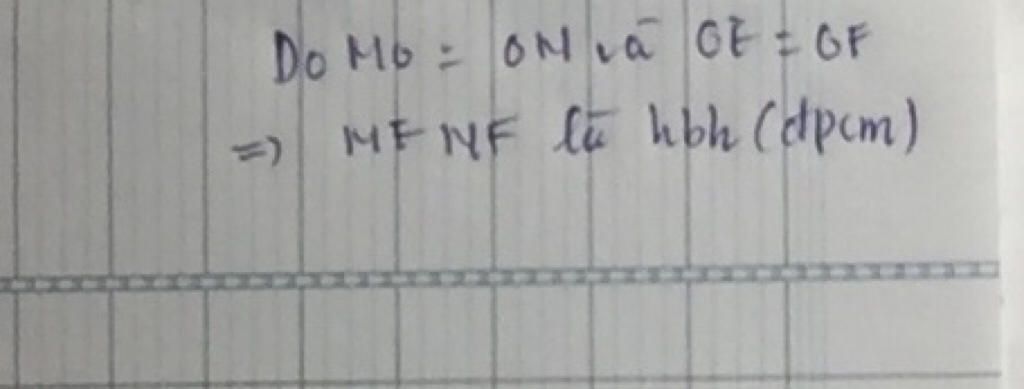 Do MO = ON và OE = OF
=> MENF là hbh (đpcm)